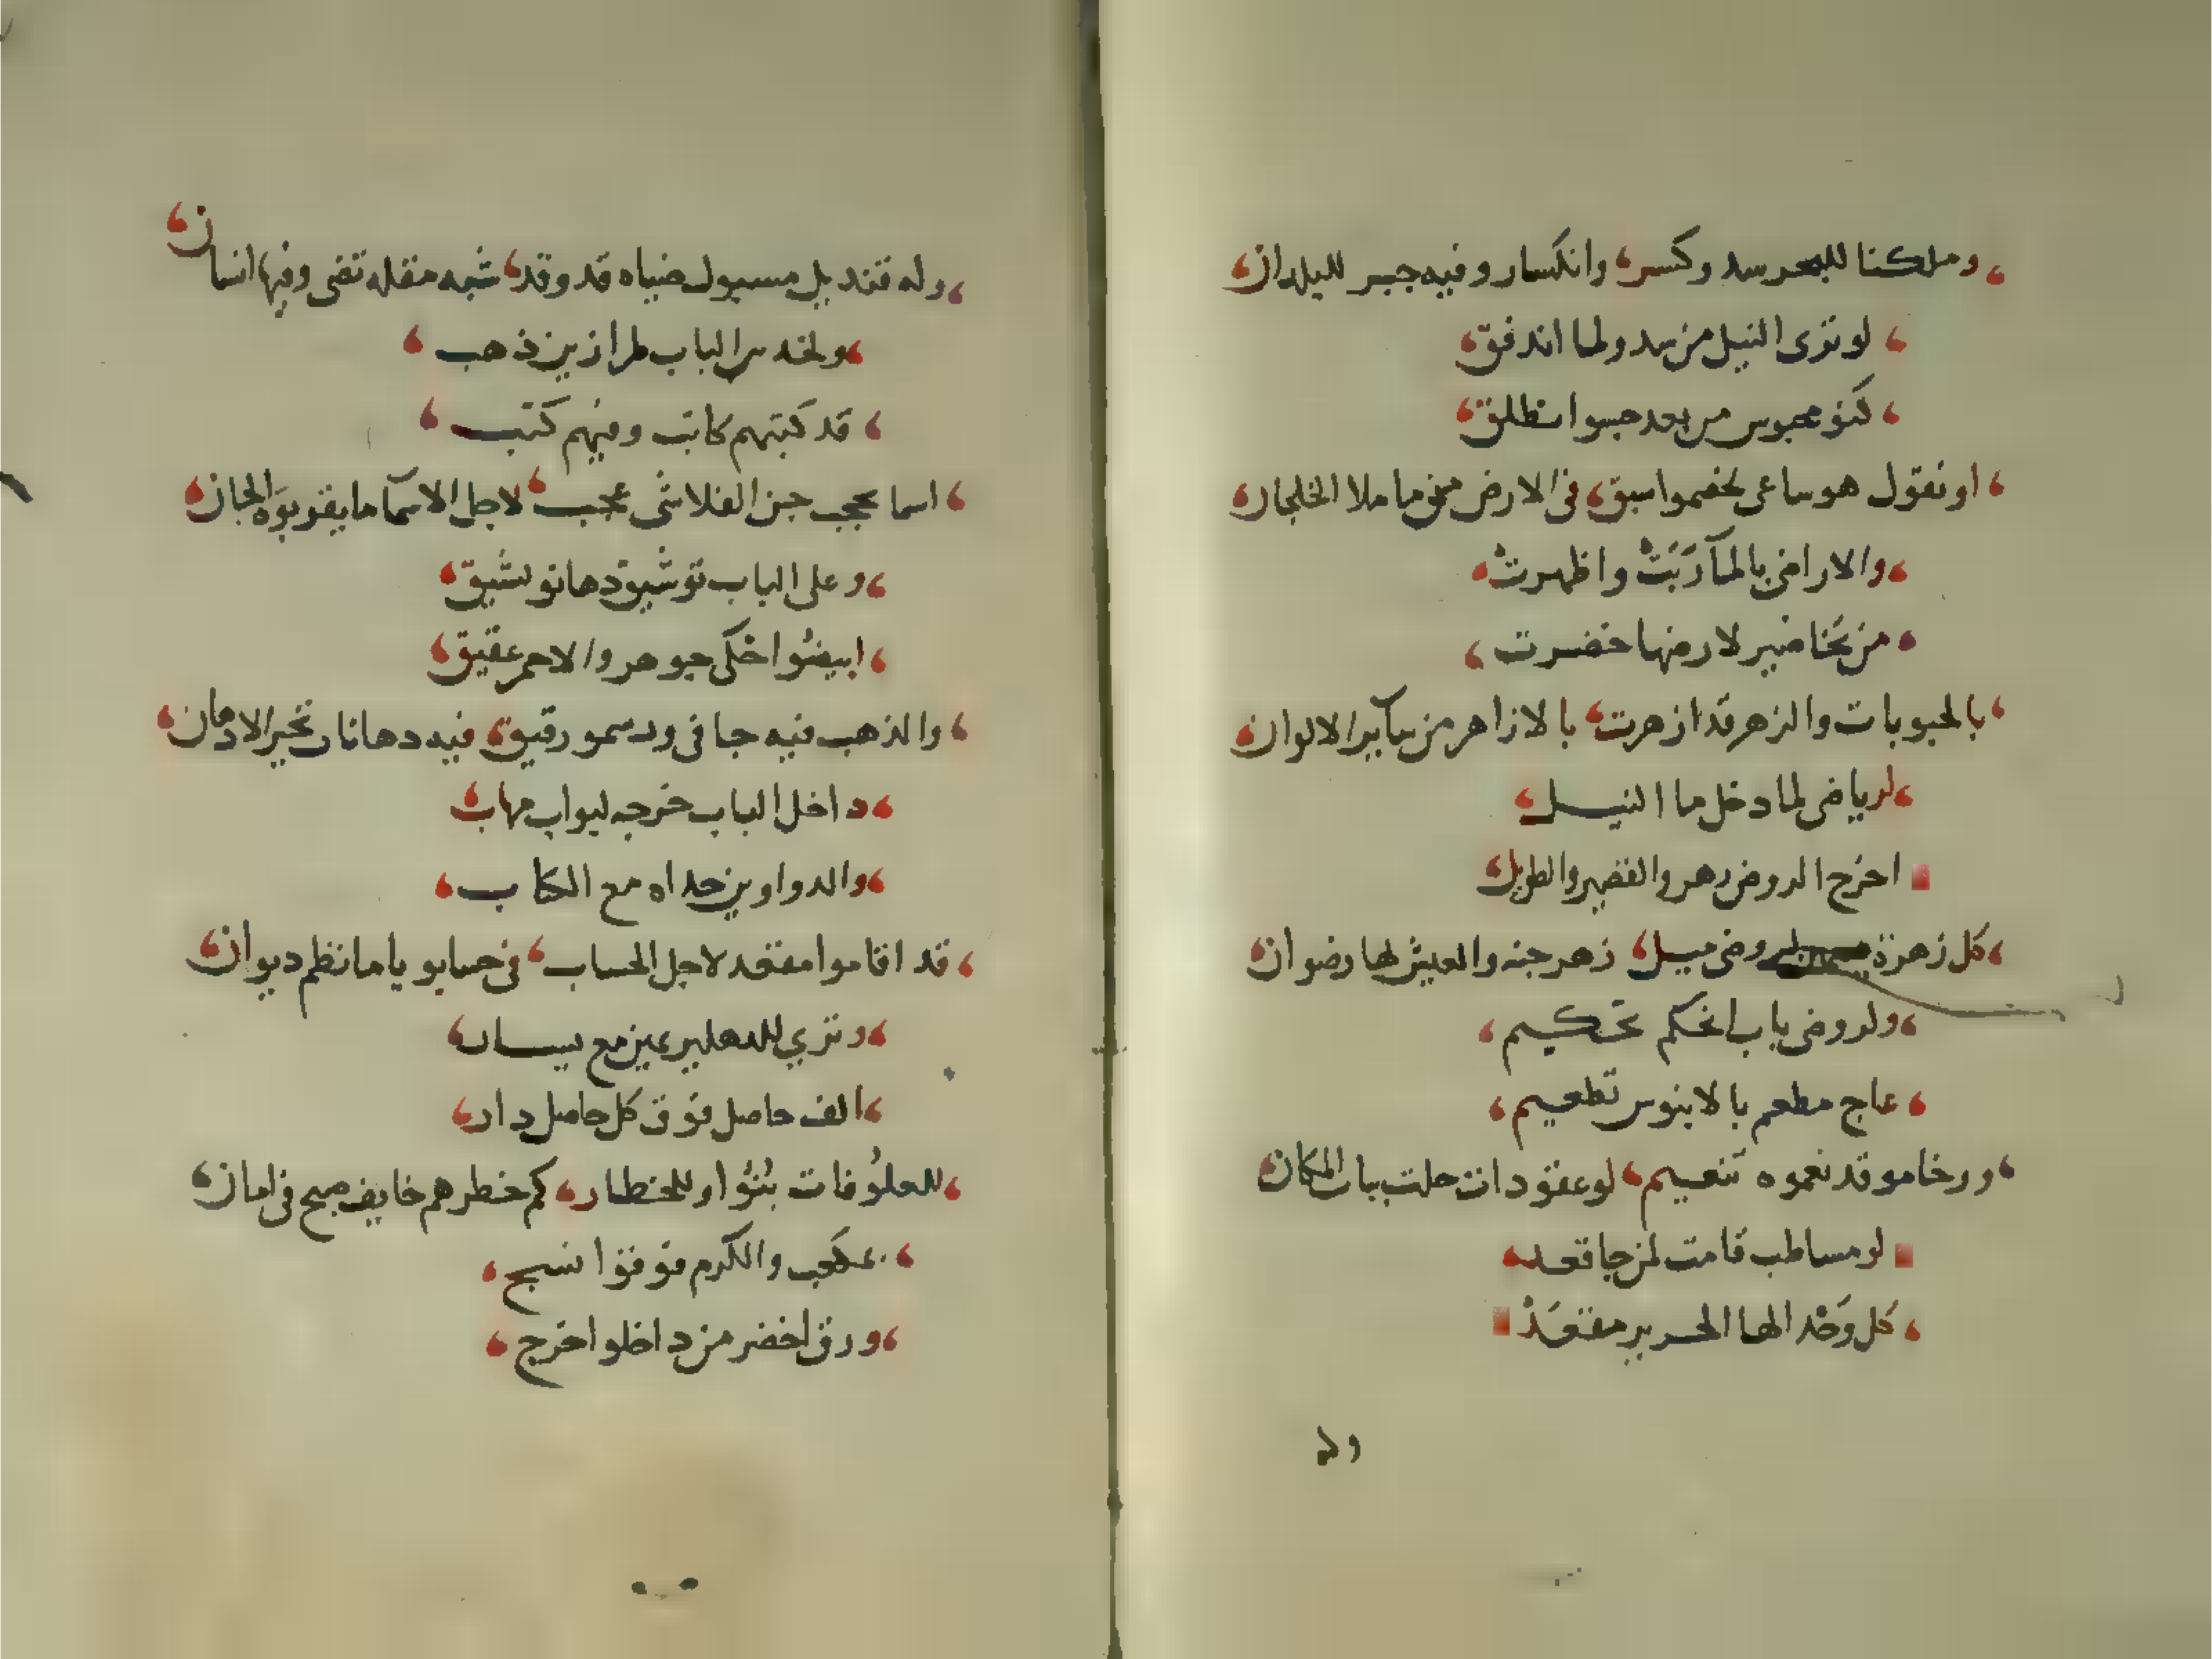 وملكنا للبحر سد وكسر وانكسار وفيه جبر للبلدان
لو ترى النيل من سد ولما اندفق
كنو محبوس من بعد حبسوا نطلق
او نقول هو ساعى لخصموا سبق فى الارض ما ملا الخلجان
والاراضى بالمآ رَبَتْ واظهرت
من ضمير لارضها خضرت
بالحبوبات والزهر قد ازهرت بالازاهر من ساير الالوان
لرياضى لما دخل ما النيل
اخرج الروض زهر والقصير والطويل
كل زهرة روض ميل زهر جنه والعيش لها رضوان
ولروضى باب احكم تحكيم
عاج مطعم بالابنوس تطعيم
ورخامو قد نعموه تنعيم لو عقودات حلت بباب المكان
لو مساطب قامت لمن جا قعد
كل وَحْد الها الحرير مقعَدْ
وله
وله قنديل مسبول ضياه قد وقد شبه مقله تضى وفيها انسان
ولخد من الباب طرازين ذهب
قد كتبهم كاتب وفيهم كتب
اسما عجب جن الفلا شى عجب لاجل الاسمآ ما يقربوَه الجان
وعلى الباب توشيق دهانو لشيق
ابيضوا حكى جوهر والاحمر عقيق
والذهب فيه جا فى ورسمو رقيق فيه دهانات تحير الادهان
داخل الباب خرجه لبواب مهاب
والدواوين حداه مع الكتاب
قد اقاموا مقعد لاجل الحساب فى حسابو ياما نظم ديوان
وترى للدهليز يمين مع يسار
الف حاصل فوق كل حاصل دار
للعلوفات بُنُوا وللخطار كم خطر هم خايف صبح فى امان
عجب والكرم فوقوا نسج
ورق اخضر من داخلو اخرج